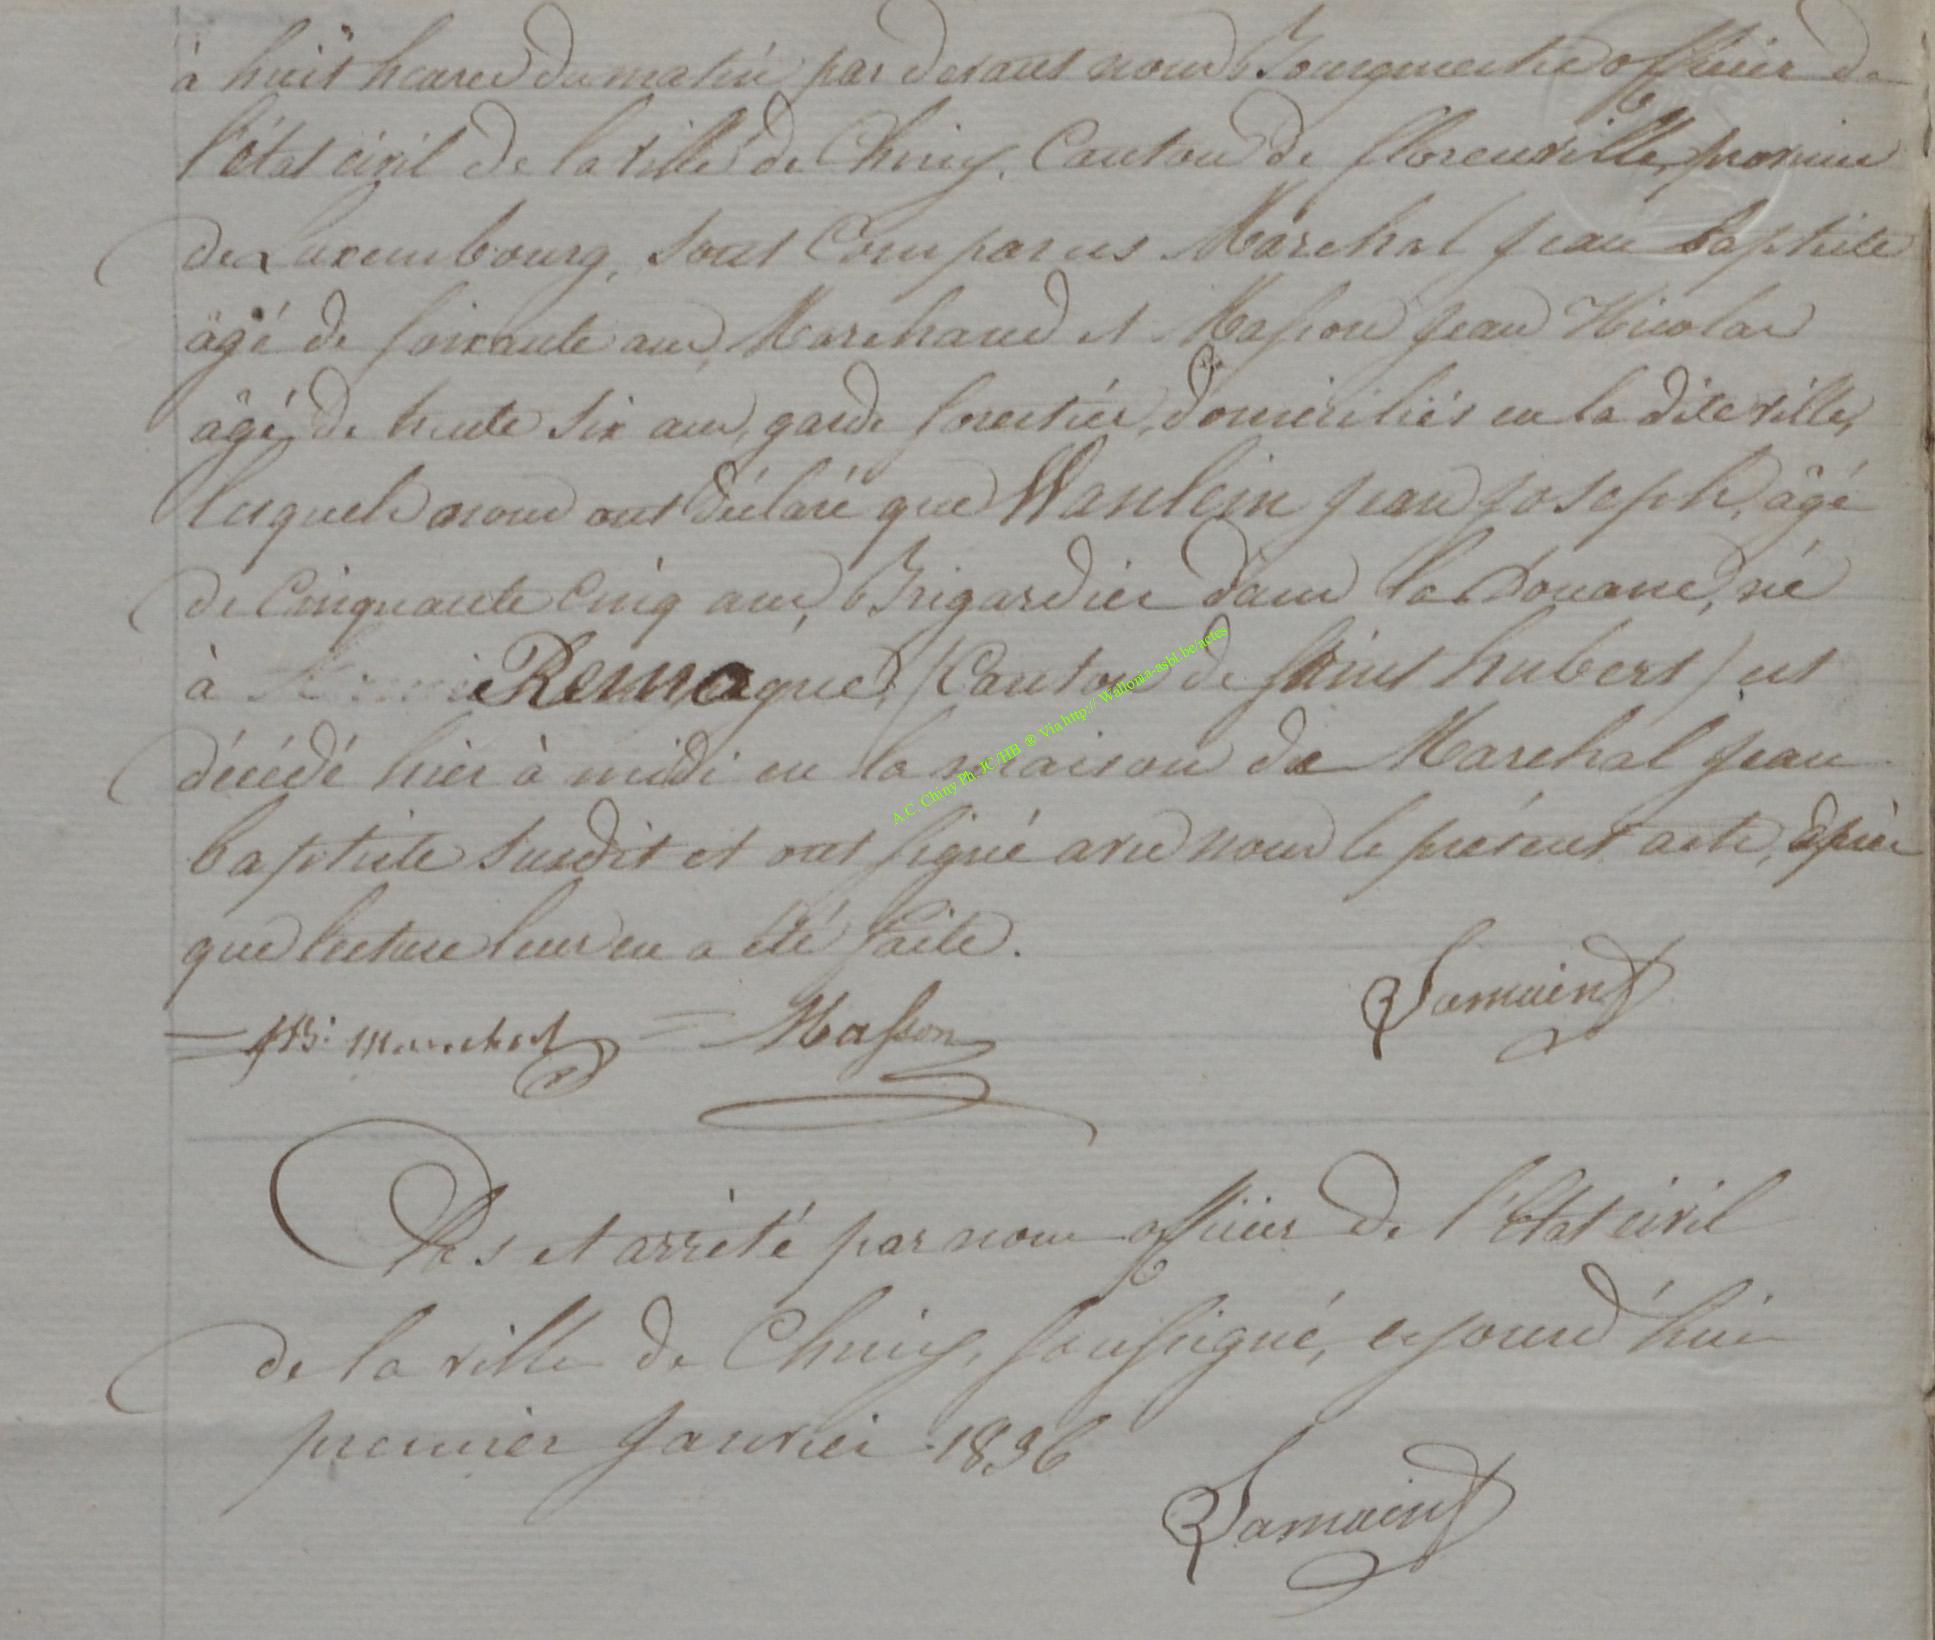 à huit heures du matin par devant nous Bourgmestre officier de
l'état civil de la ville de Chiny, Canton de florenville, province
de Luxembourg, sont Comparus Maréchal jean baptiste
âgé de soixante ans, Marchand et Masson jean Nicolas
âgé de trente six ans, garde forestier, domiciliés en la dite ville,
lesquels nous ont déclaré que Wanlein jean joseph, âgé
de Cinquante Cinq ans, Brigardier dans la Douane, né
à Remagne, (Canton de saint hubert) est
décédé hier à midi en la maison de Marchal jean
baptiste susdit et ont signé avec nous le présent acte, après
que lecture leur en a été faite.
JB: Marechal Masson Jamain
Clos et arrêté par nous officier de l'état civil
de la ville de Chiny, soussigné, cejourd'hui
premier janvier 1836
Jamain
A.C. Chiny Ph JC/HB ® Via http:// Wallonia-asbl.be/actes